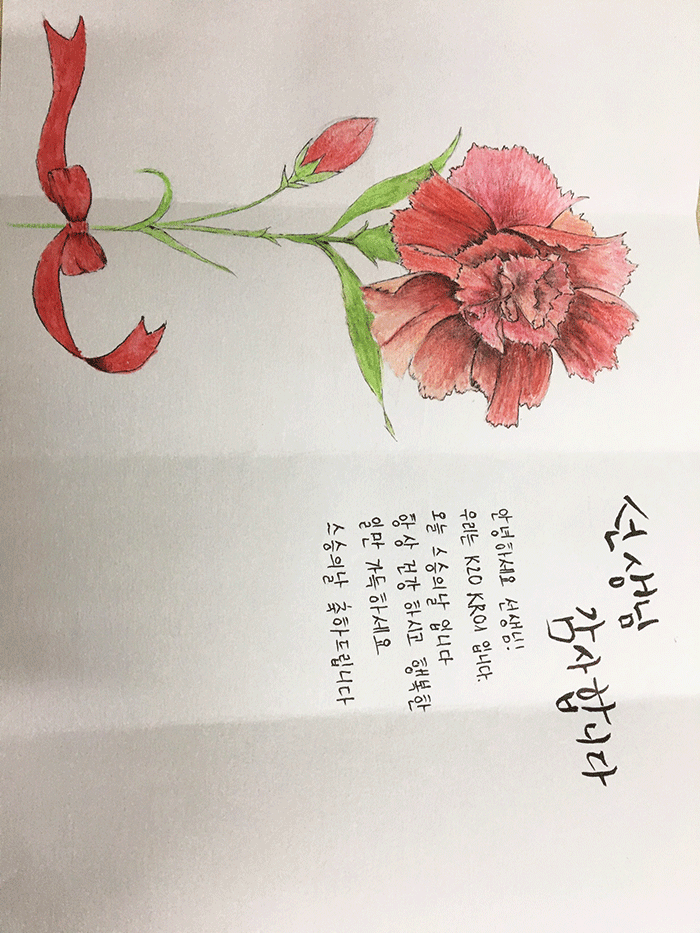 선생님
감사합니다
안녕하세요 선생님!
우리는 K20 KR01 입니다.
오늘 스승의날 입니다
항상 건강 하시고 행복한
일만 가득하세요
스승의날 축하드립니다